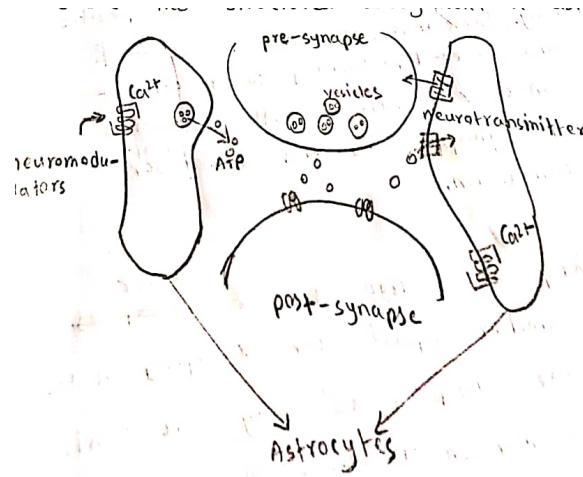 pre-synapse
vesicles
Ca²⁺
neurotransmitter
neuromodu-
lators
ATP
Ca²⁺
post-synapse
Astrocytes